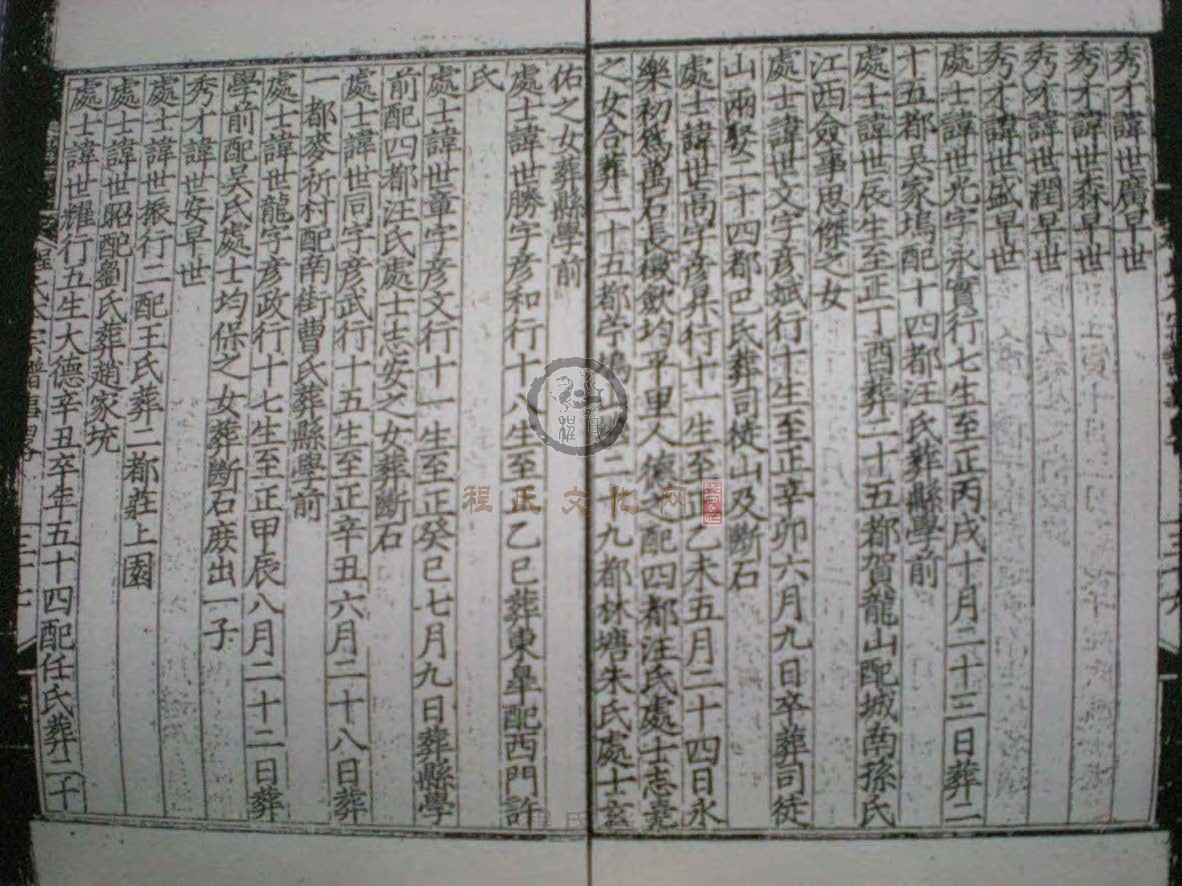 秀才諱世廣早世
秀才諱世森早世
秀才諱世潤早世
秀才諱世盛早世
處士諱世光字永實行七生至正丙戌十月二十三日葬二
十五都吴家塢配十四都汪氏葬縣學前
處士諱世辰生至正丁酉葬二十五都賀龍山配城南孫氏
江西僉事思傑之女
處士諱世文字彦斌行十生至正辛卯六月九日卒葬司徒
山兩娶二十四都巳氏葬司徒山及斷石
處士諱世高字彦昇行十一生至正乙未五月二十四日永
樂初爲萬石長稅歛均平里人德之配四都汪氏處士志
之女合葬二十五都字塢二九都林塘朱氏處士玄
佑之女葬縣學前
處士諱世勝字彦和行十八生至正乙巳葬東臯配西門許
氏
處士諱世章字彦文行十一生至正癸巳七月九日葬縣學
前配四都汪氏處士志安之女葬斷石
處士諱世同字彦武行十五生至正辛丑六月二十八日葬
一都麥祈村配南街曹氏葬縣學前
處士諱世龍字彦政行十七生至正甲辰八月二十二日葬
學前配吴氏處士均保之女葬斷石庻出一子
秀才諱世安早世
處士諱世振行二配王氏葬二都莊上園
處士諱世昭配劉氏葬趙家坑
處士諱世耀行五生大德辛丑卒年五十四配任氏葬二十
程氏文化网